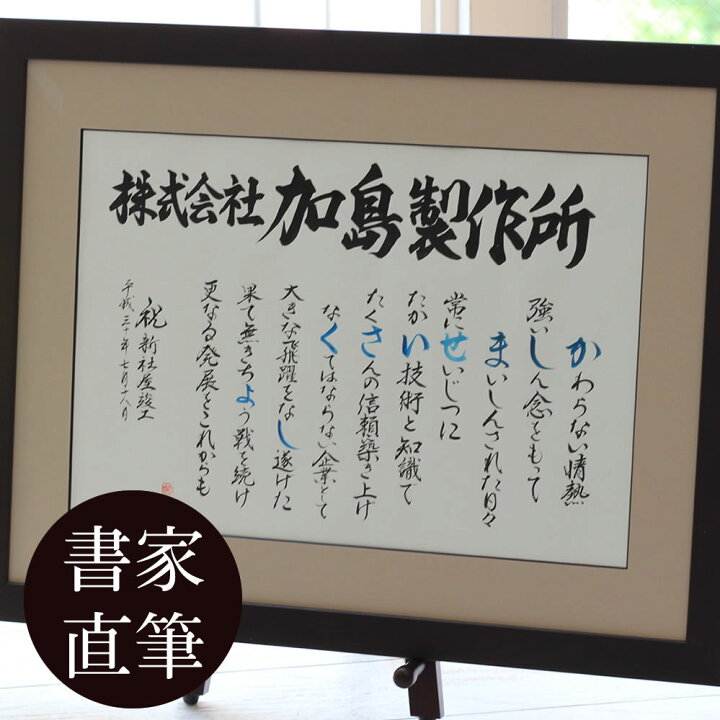 株式会社加島製作所
かわらない情熱
強いしん念をもって
まいしんされた日々
常にせいじつに
たかい技術と知識で
たくさんの信頼築き上げ
なくてはならない企業として
大きな飛躍をなし遂げた
果て無きちょう戦を続け
更なる発展をこれからも
祝 新社屋竣工
平成三十年七月十八日
書家
直筆